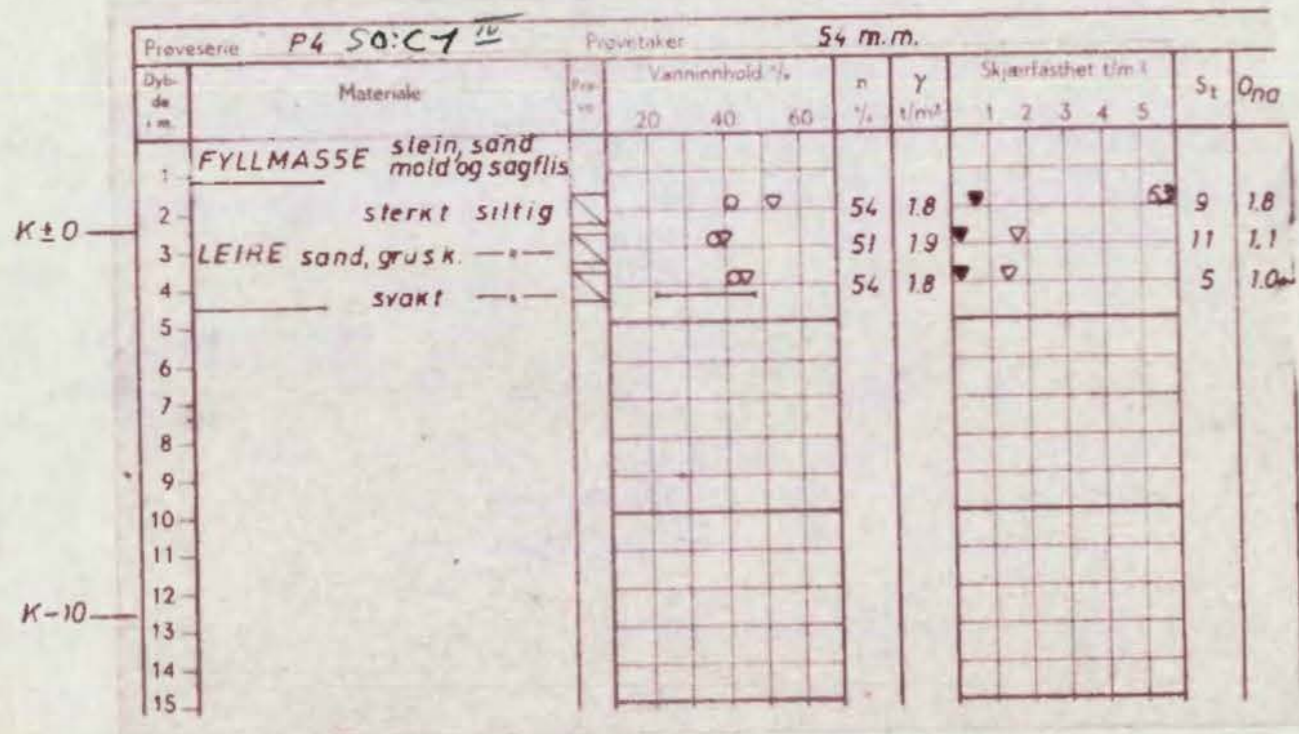 Prøveserie P4 SO:C1 IV Prøvetaker 54 m.m.
Dyb-de i m. Materiale Prø-ve Vanninnhold % n % γ t/m³ Skjærfasthet t/m² St Ona
20 40 60 1 2 3 4 5
FYLLMASSE stein, sand
1 mold og sagflis
2 sterkt siltig 54 1.8 63 9 1.8
K±0
3 LEIRE sand, grusk. —"— 51 1.9 11 1.1
4 svakt —"— 54 1.8 5 1.0
5
6
7
8
9
10
11
12
K-10
13
14
15